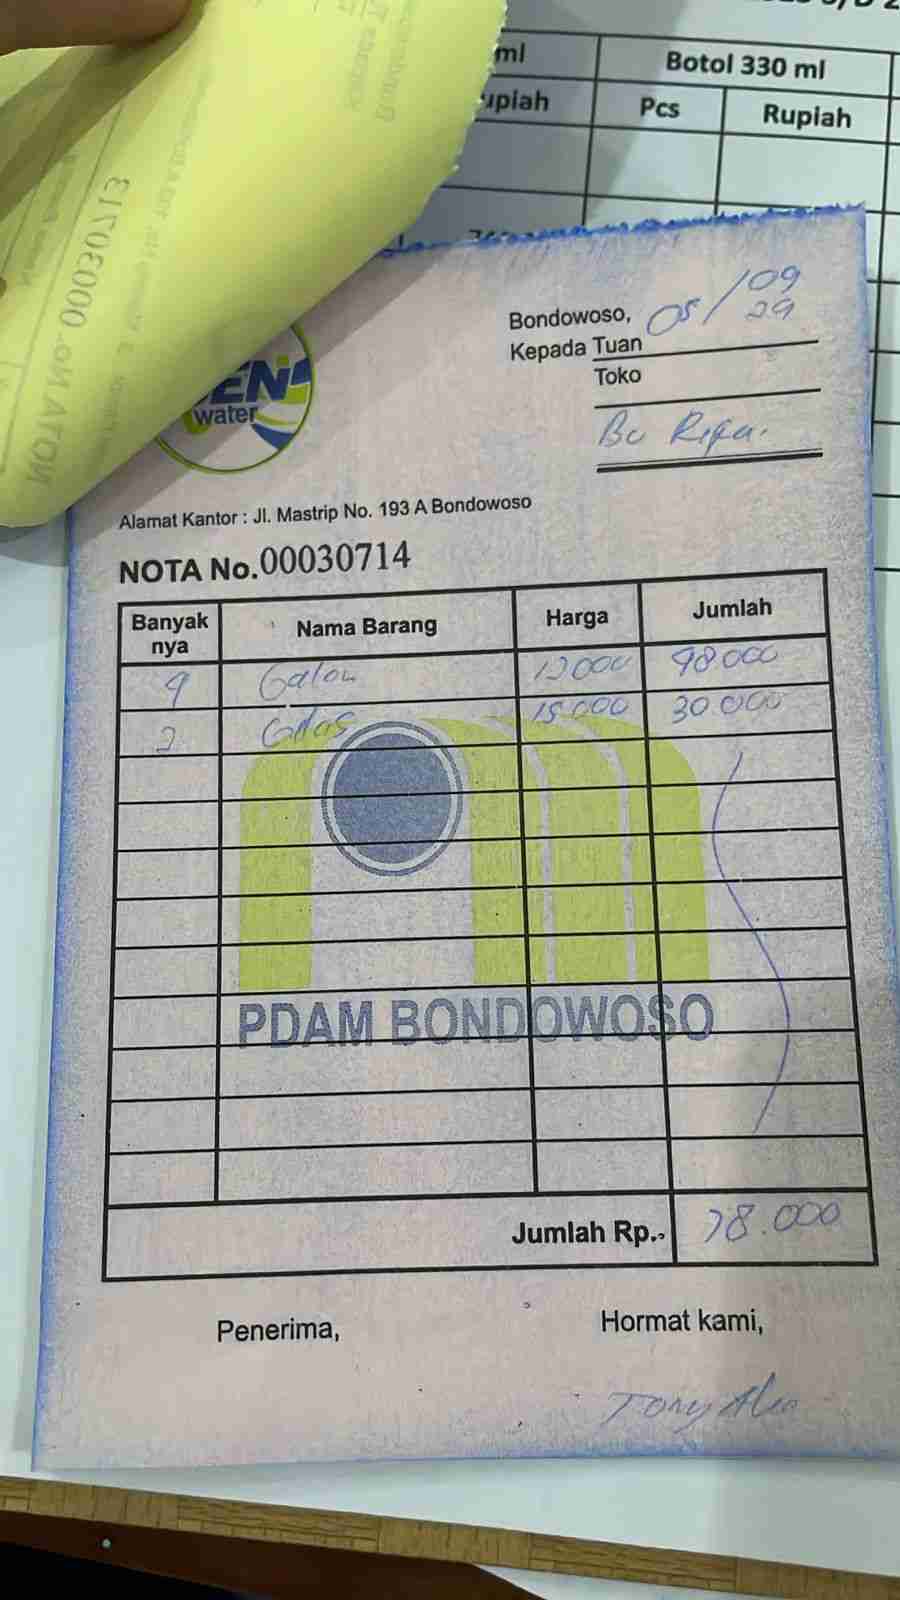 ml
Botol 330 ml
upiah
Pcs
Rupiah
NOTA No. 00030713
Bondowoso, 05/09
29
Kepada Tuan
Toko
Bu
EN
water
Alamat Kantor : Jl. Mastrip No. 193 A Bondowoso
NOTA No.00030714
Banyak nya Nama Barang Harga Jumlah
4 Galon 12000 48.000
2 Gelas 15.000 30.000
PDAM BONDOWOSO
Jumlah Rp.- 78.000
Penerima,
Hormat kami,
Tony